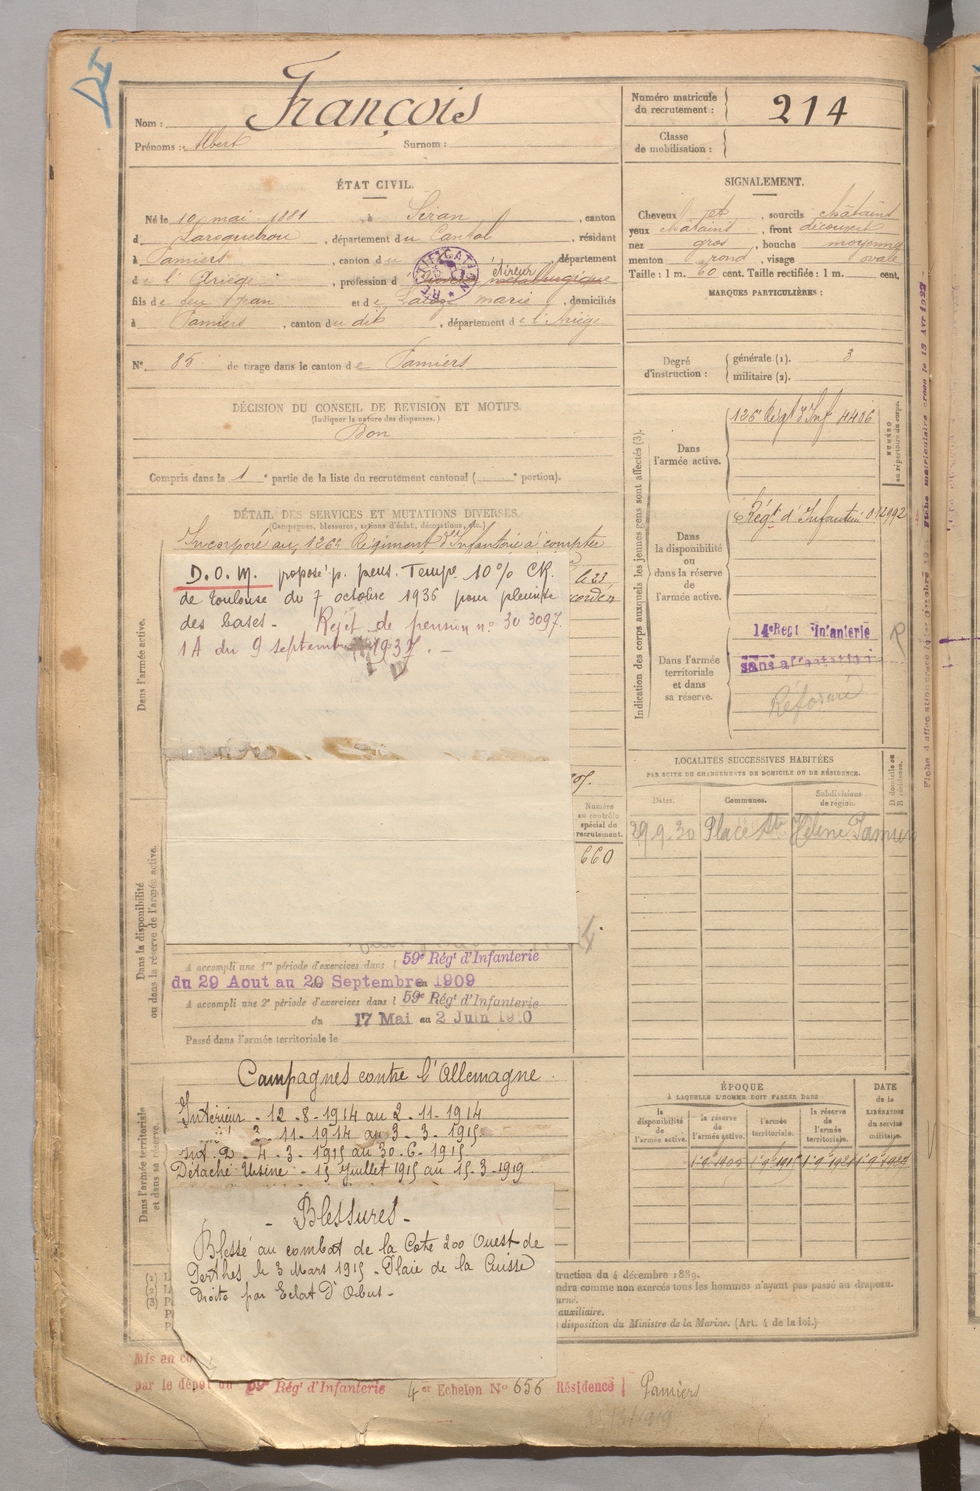 Nom : François
Prénoms : Albert Surnom :
Numéro matricule du recrutement : 214
Classe de mobilisation :
ÉTAT CIVIL.
Né le 10 mai 1881 à Siran, canton
d Laroquebrou, département du Cantal, résidant
à Pamiers, canton du , département
de l'Ariège, profession d étireur métallurgique
fils de feu Jean et de marie, domiciliés
à Pamiers, canton du dit, département de l'Ariège
N° 85 de tirage dans le canton de Pamiers
DÉCISION DU CONSEIL DE REVISION ET MOTIFS.
(Indiquer la nature des dispenses.)
Bon
Compris dans la 1e partie de la liste du recrutement cantonal ( e portion).
DÉTAIL DES SERVICES ET MUTATIONS DIVERSES.
(Campagnes, blessures, actions d'éclat, décorations, etc.)
Incorporé au 126e Régiment d'Infanterie à compter
Dans l'armée active.
D.O.M. proposé p. pens. Tempre 10% CR.
de Toulouse du 7 octobre 1936 pour pleurite
des bases - Rejet de pension n° 30 3097.
1A du 9 septembre 1937. -
Dans la disponibilité
ou dans la réserve de l'armée active.
Numéro
au contrôle
spécial du
recrutement.
660
A accompli une 1re période d'exercices dans l 59e Régt d'Infanterie
du 29 Aout au 20 Septembre 1909
A accompli une 2e période d'exercices dans l 59e Régt d'Infanterie
du 17 Mai au 2 Juin 1910
Passé dans l'armée territoriale le
Dans l'armée territoriale
et dans sa réserve.
Campagnes contre l'Allemagne.
Intérieur - 12-8-1914 au 2-11-1914
3-11-1914 au 3-3-1915
Int. D - 4-3-1915 au 30-6-1915
Détaché Usine - 15 Juillet 1915 au 15-3-1919.
- Blessures -
Blessé au combat de la Cote 200 Ouest de
Perthes le 3 Mars 1915 - Plaie de la Cuisse
Droite par Eclat d'Obus -
Mis en co
par le dépôt du 59e Régt d'Infanterie 4er Echelon No 656 Résidence Pamiers
SIGNALEMENT.
Cheveux et, sourcils châtains
yeux châtains, front découvert
nez gros, bouche moyenne
menton rond, visage ovale
Taille : 1 m. 60 cent. Taille rectifiée : 1 m. cent.
MARQUES PARTICULIÈRES :
Degré d'instruction : générale (1). 3
militaire (2).
Indication des corps auxquels les jeunes gens sont affectés (3).
NUMÉRO
au répertoire du corps.
Dans
l'armée active.
126e Régt d'Inf 4406
Dans
la disponibilité
ou
dans la réserve
de
l'armée active.
Régt d'Infanterie
Dans l'armée
territoriale
et dans
sa réserve.
14e Regt Infanterie
sans affectation
Réformé
R
LOCALITÉS SUCCESSIVES HABITÉES
PAR SUITE DE CHANGEMENTS DE DOMICILE OU DE RÉSIDENCE.
Dates. Communes. Subdivisions de région. D domicile ou R résidence.
29.9.30 Place Ste Hélène Pamiers
ÉPOQUE
À LAQUELLE L'HOMME DOIT PASSER DANS
DATE
de la
LIBÉRATION
du service
militaire.
la disponibilité de l'armée active.
la réserve de l'armée active.
l'armée territoriale.
la réserve de l'armée territoriale.
truction du 4 décembre 1889.
ndra comme non exercés tous les hommes n'ayant pas passé au drapeau.
urné.
auxiliaire.
disposition du Ministre de la Marine. (Art. 4 de la loi.)